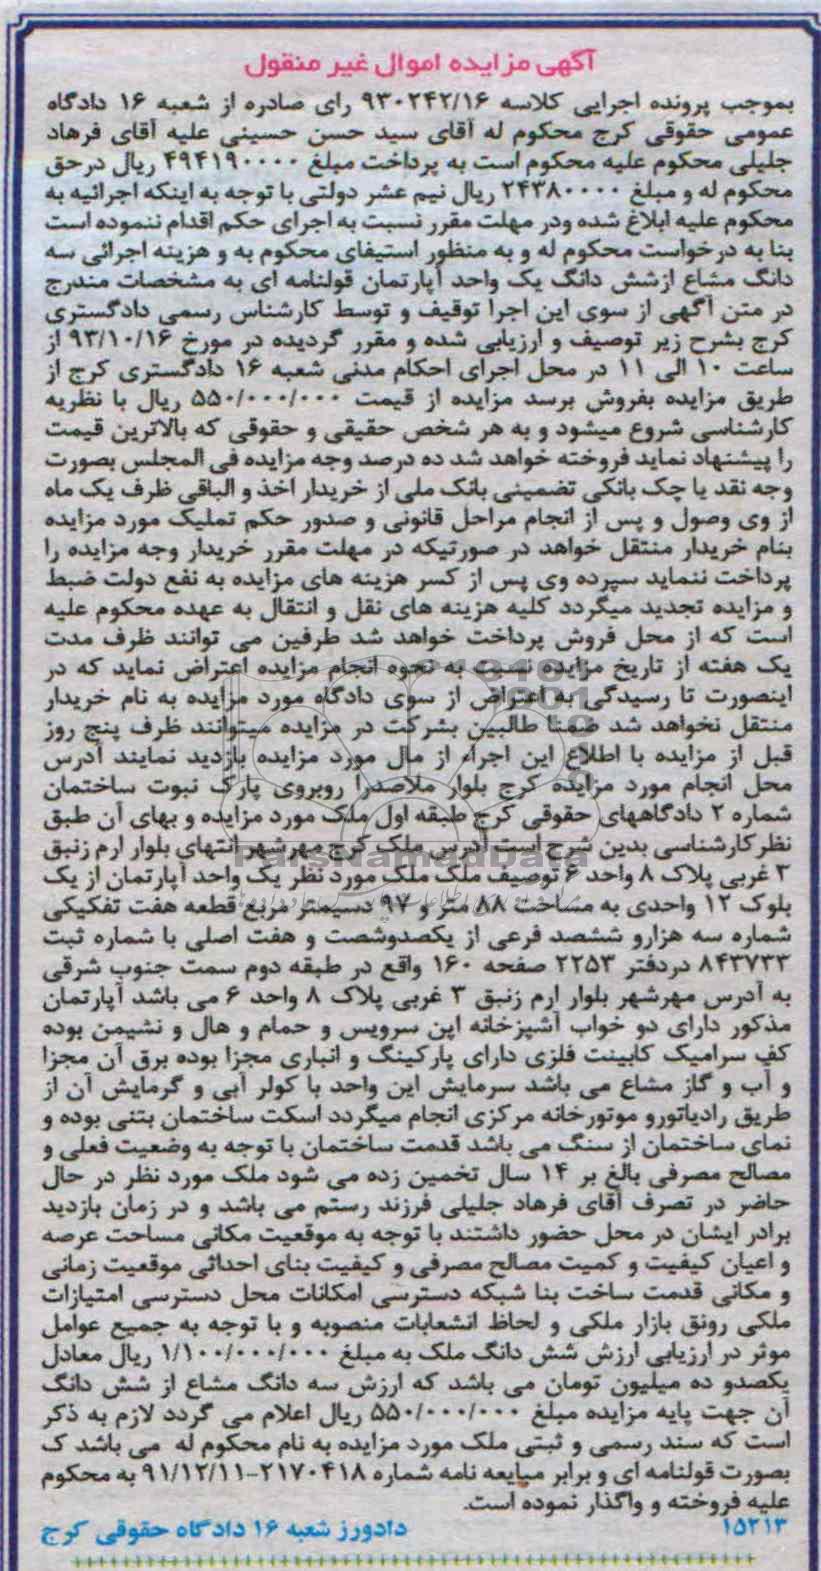 آگهی مزایده اموال غیر منقول
بموجب پرونده اجرایی کلاسه ۹۳۰۲۴۲/۱۶ رای صادره از شعبه ۱۶ دادگاه
عمومی حقوقی کرج محکوم له آقای سید حسن حسینی علیه آقای فرهاد
جلیلی محکوم علیه محکوم است به پرداخت مبلغ ۴۹۴۱۹۰۰۰۰ ریال درحق
محکوم له و مبلغ ۲۴۳۸۰۰۰۰ ریال نیم عشر دولتی با توجه به اینکه اجرائیه به
محکوم علیه ابلاغ شده ودر مهلت مقرر نسبت به اجرای حکم اقدام ننموده است
بنا به درخواست محکوم له و به منظور استیفای محکوم به و هزینه اجرائی سه
دانگ مشاع ازشش دانگ یک واحد آپارتمان قولنامه ای به مشخصات مندرج
در متن آگهی از سوی این اجرا توقیف و توسط کارشناس رسمی دادگستری
کرج بشرح زیر توصیف و ارزیابی شده و مقرر گردیده در مورخ ۹۳/۱۰/۱۶ از
ساعت ۱۰ الی ۱۱ در محل اجرای احکام مدنی شعبه ۱۶ دادگستری کرج از
طریق مزایده بفروش برسد مزایده از قیمت ۵۵۰/۰۰۰/۰۰۰ ریال با نظریه
کارشناسی شروع میشود و به هر شخص حقیقی و حقوقی که بالاترین قیمت
را پیشنهاد نماید فروخته خواهد شد ده درصد وجه مزایده فی المجلس بصورت
وجه نقد یا چک بانکی تضمینی بانک ملی از خریدار اخذ و الباقی ظرف یک ماه
از وی وصول و پس از انجام مراحل قانونی و صدور حکم تملیک مورد مزایده
بنام خریدار منتقل خواهد در صورتیکه در مهلت مقرر خریدار وجه مزایده را
پرداخت ننماید سپرده وی پس از کسر هزینه های مزایده به نفع دولت ضبط
و مزایده تجدید میگردد کلیه هزینه های نقل و انتقال به عهده محکوم علیه
است که از محل فروش پرداخت خواهد شد طرفین می توانند ظرف مدت
یک هفته از تاریخ مزایده نسبت به نحوه انجام مزایده اعتراض نماید که در
اینصورت تا رسیدگی به اعتراض از سوی دادگاه مورد مزایده به نام خریدار
منتقل نخواهد شد ضمنا طالبین بشرکت در مزایده میتوانند ظرف پنج روز
قبل از مزایده با اطلاع این اجراء از مال مورد مزایده بازدید نمایند آدرس
محل انجام مورد مزایده کرج بلوار ملاصدرا روبروی پارک نبوت ساختمان
شماره ۲ دادگاههای حقوقی کرج طبقه اول ملک مورد مزایده و بهای آن طبق
نظرکارشناسی بدین شرح است آدرس ملک کرج مهرشهر انتهای بلوار ارم زنبق
ParsNamadData
۳ غربی پلاک ۸ واحد ۶ توصیف ملک ملک مورد نظر یک واحد آپارتمان از یک
بلوک ۱۲ واحدی به مساحت ۸۸ متر و ۹۷ دسیمتر مربع قطعه هفت تفکیکی
شماره سه هزارو ششصد فرعی از یکصدوشصت و هفت اصلی با شماره ثبت
۸۴۳۷۳۳ دردفتر ۲۲۵۳ صفحه ۱۶۰ واقع در طبقه دوم سمت جنوب شرقی
به آدرس مهرشهر بلوار ارم زنبق ۳ غربی پلاک ۸ واحد ۶ می باشد آپارتمان
مذکور دارای دو خواب آشپزخانه اپن سرویس و حمام و هال و نشیمن بوده
کف سرامیک کابینت فلزی دارای پارکینگ و انباری مجزا بوده برق آن مجزا
و آب و گاز مشاع می باشد سرمایش این واحد با کولر آبی و گرمایش آن از
طریق رادیاتورو موتورخانه مرکزی انجام میگردد اسکت ساختمان بتنی بوده و
نمای ساختمان از سنگ می باشد قدمت ساختمان با توجه به وضعیت فعلی و
مصالح مصرفی بالغ بر ۱۴ سال تخمین زده می شود ملک مورد نظر در حال
حاضر در تصرف آقای فرهاد جلیلی فرزند رستم می باشد و در زمان بازدید
برادر ایشان در محل حضور داشتند با توجه به موقعیت مکانی مساحت عرصه
و اعیان کیفیت و کمیت مصالح مصرفی و کیفیت بنای احداثی موقعیت زمانی
و مکانی قدمت ساخت بنا شبکه دسترسی امکانات محل دسترسی امتیازات
ملکی رونق بازار ملکی و لحاظ انشعابات منصوبه و با توجه به جمیع عوامل
موثر در ارزیابی ارزش شش دانگ ملک به مبلغ ۱/۱۰۰/۰۰۰/۰۰۰ ریال معادل
یکصدو ده میلیون تومان می باشد که ارزش سه دانگ مشاع از شش دانگ
آن جهت پایه مزایده مبلغ ۵۵۰/۰۰۰/۰۰۰ ریال اعلام می گردد لازم به ذکر
است که سند رسمی و ثبتی ملک مورد مزایده به نام محکوم له می باشد ک
بصورت قولنامه ای و برابر مبایعه نامه شماره ۲۱۷۰۴۱۸-۹۱/۱۲/۱۱ به محکوم
علیه فروخته و واگذار نموده است.
۱۵۲۱۳ دادورز شعبه ۱۶ دادگاه حقوقی کرج